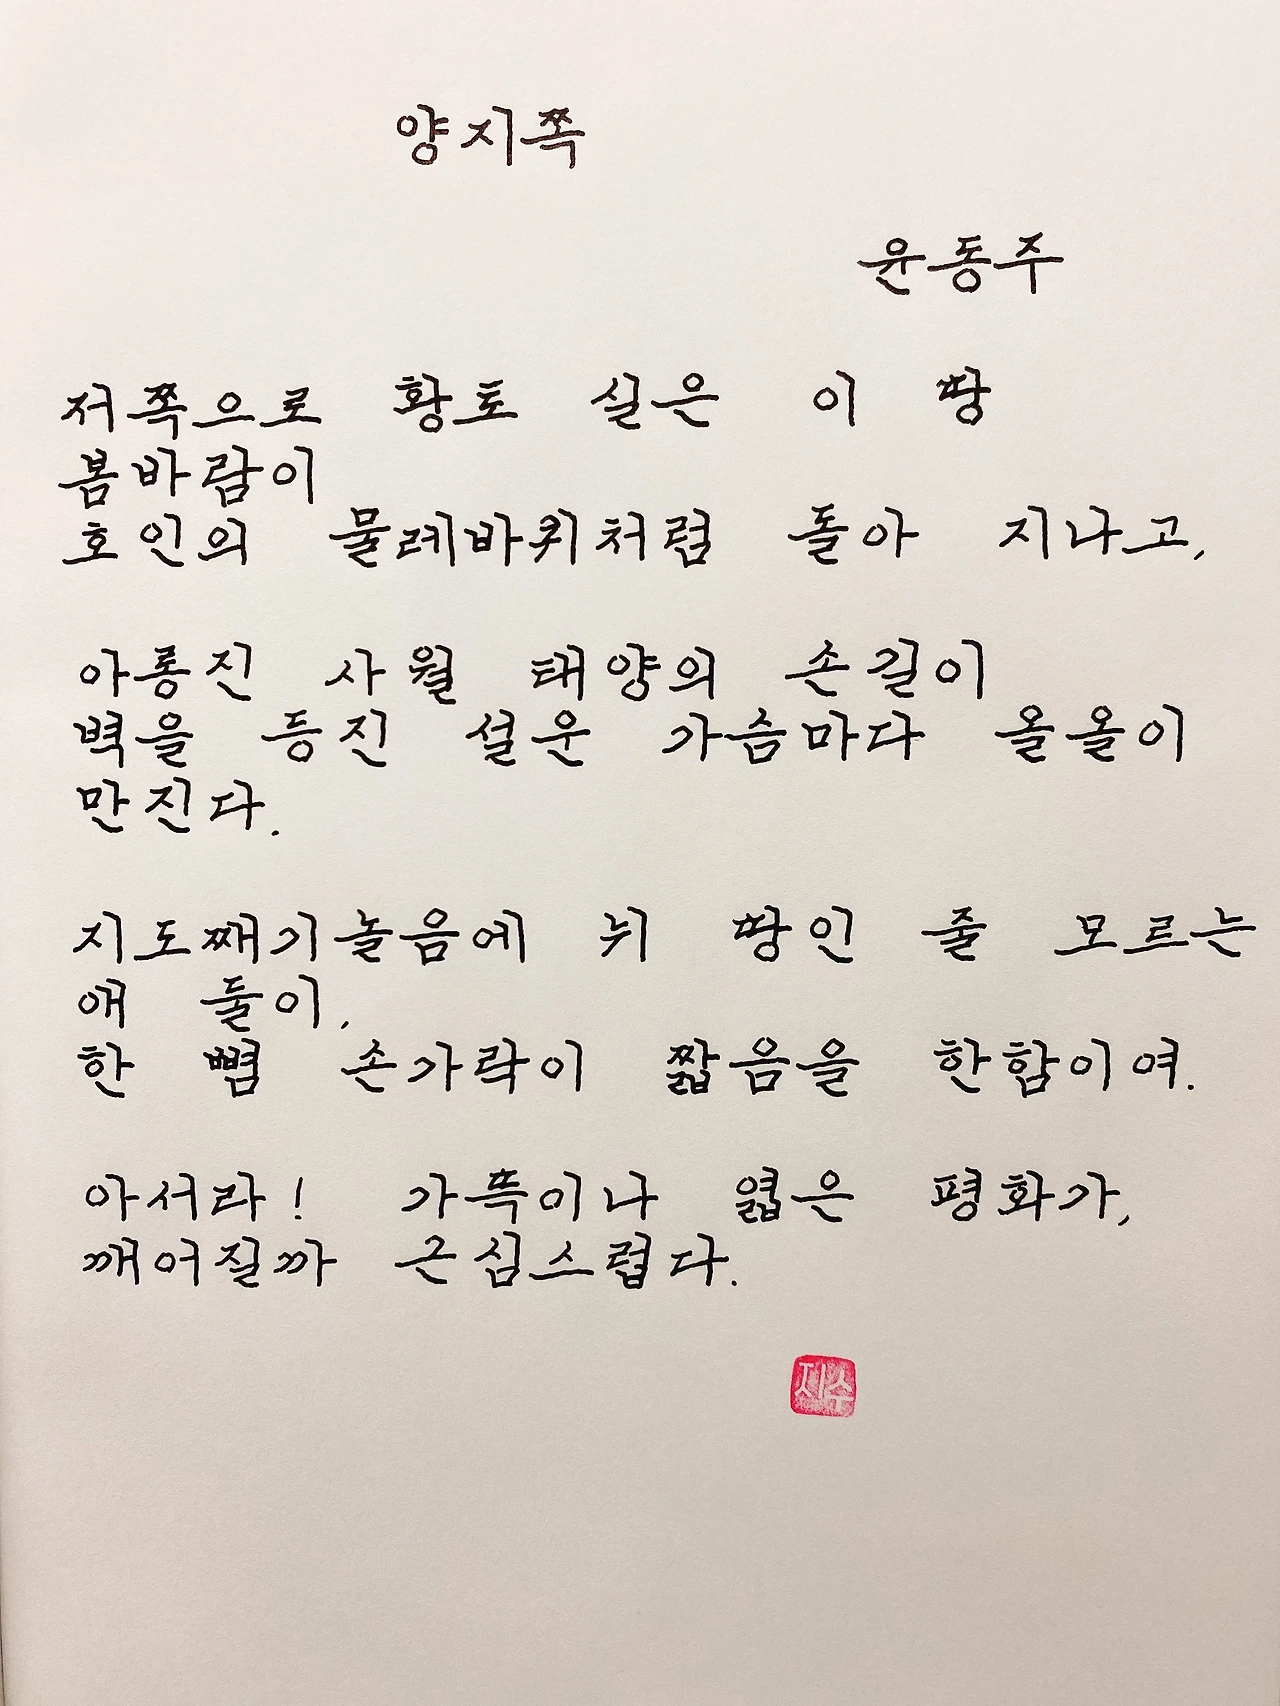 양지쪽
윤동주
저쪽으로 황토 실은 이 땅
봄바람이
호인의 물레바퀴처럼 돌아 지나고,
아롱진 사월 태양의 손길이
벽을 등진 설운 가슴마다 올올이
만진다.
지도째기놀음에 뉘 땅인 줄 모르는
애 둘이,
한 뼘 손가락이 짧음을 한함이여.
아서라! 가뜩이나 엷은 평화가,
깨어질까 근심스럽다.
지수